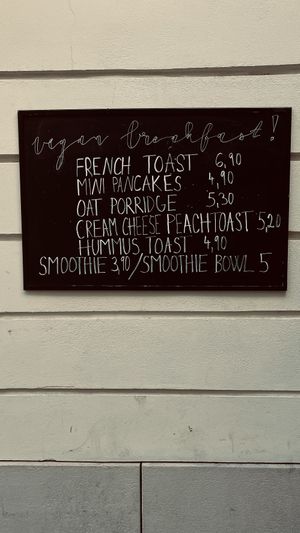 vegan breakfast!
FRENCH TOAST 6,90
MINI PANCAKES 4,90
OAT PORRIDGE 5,30
CREAM CHEESE PEACHTOAST 5,20
HUMMUS TOAST 4,90
SMOOTHIE 3,90/SMOOTHIE BOWL 5